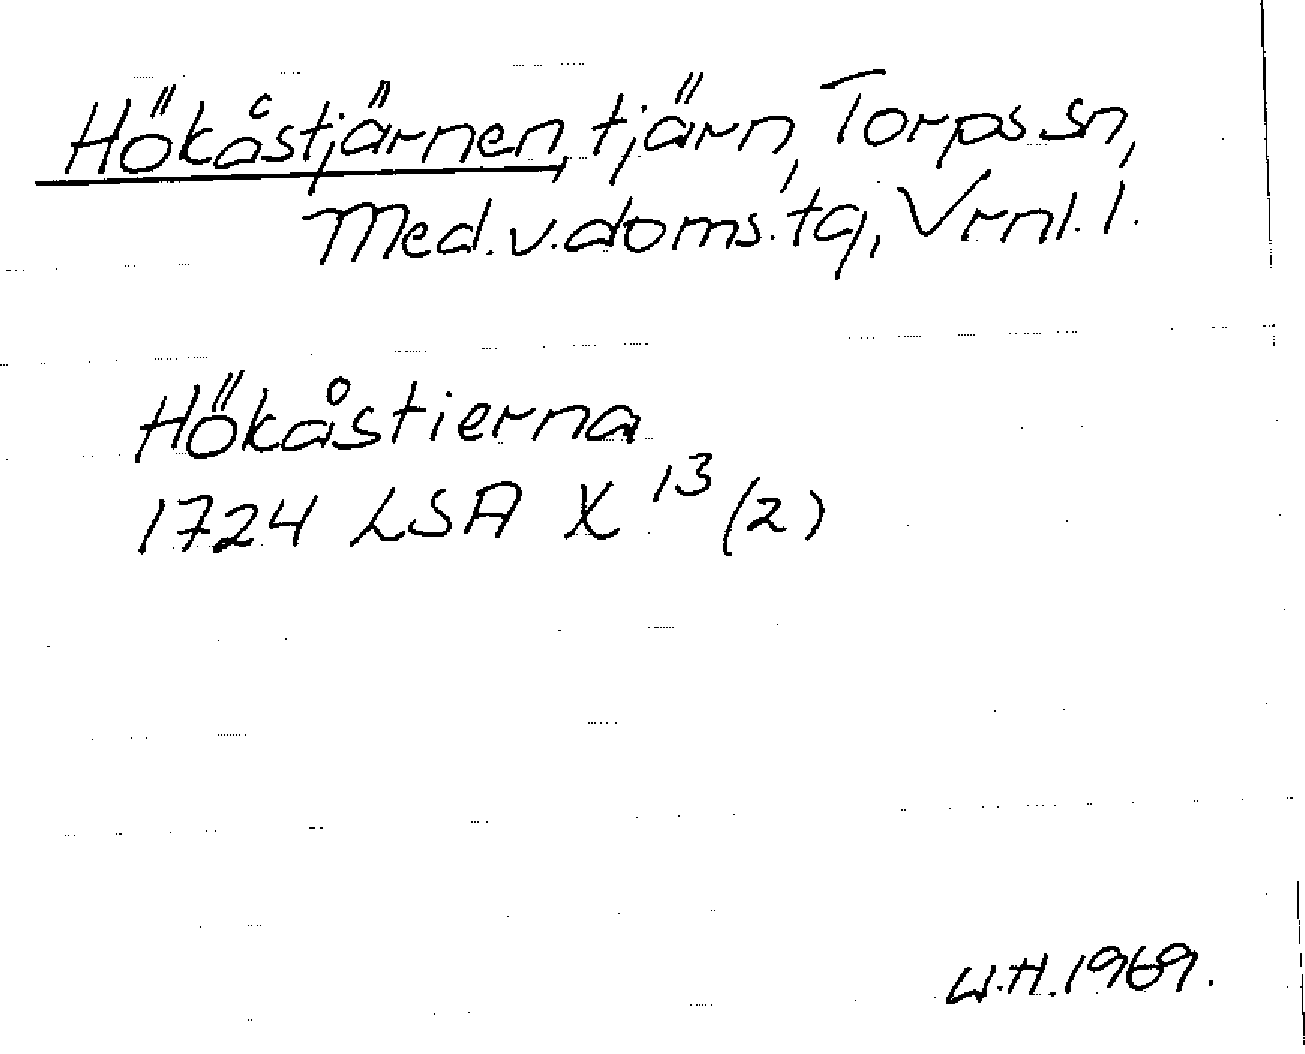 Hökåstjärnen, tjärn, Torps sn,
Med.v.doms.tg, Vrnl. l.
Hökåstierna
1724 LSA X 13 (2)
W.H. 1969.